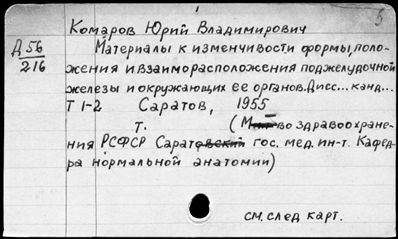 5
Комаров Юрий Владимирович
Д 56
216
Материалы к изменчивости формы, поло-
жения и взаиморасположения поджелудочной
железы и окружающих ее органов. Дисс... канд...
Т 1-2 Саратов, 1955
т. (М-во здравоохране-
ния РСФСР Саратовский гос. мед. ин-т. Кафед-
ра нормальной анатомии)
см. след карт.